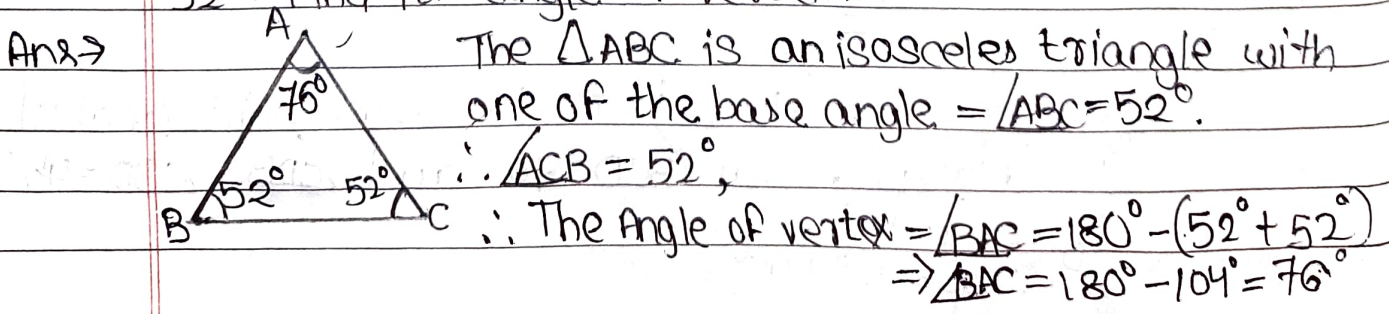 Ans→
A
The △ABC is an isosceles triangle with
76°
one of the base angle = ∠ABC=52°.
∴ ∠ACB = 52°,
52° 52°
B C
∴ The Angle of vertex = ∠BAC = 180° - (52° + 52°)
⇒ ∠BAC = 180° - 104° = 76°